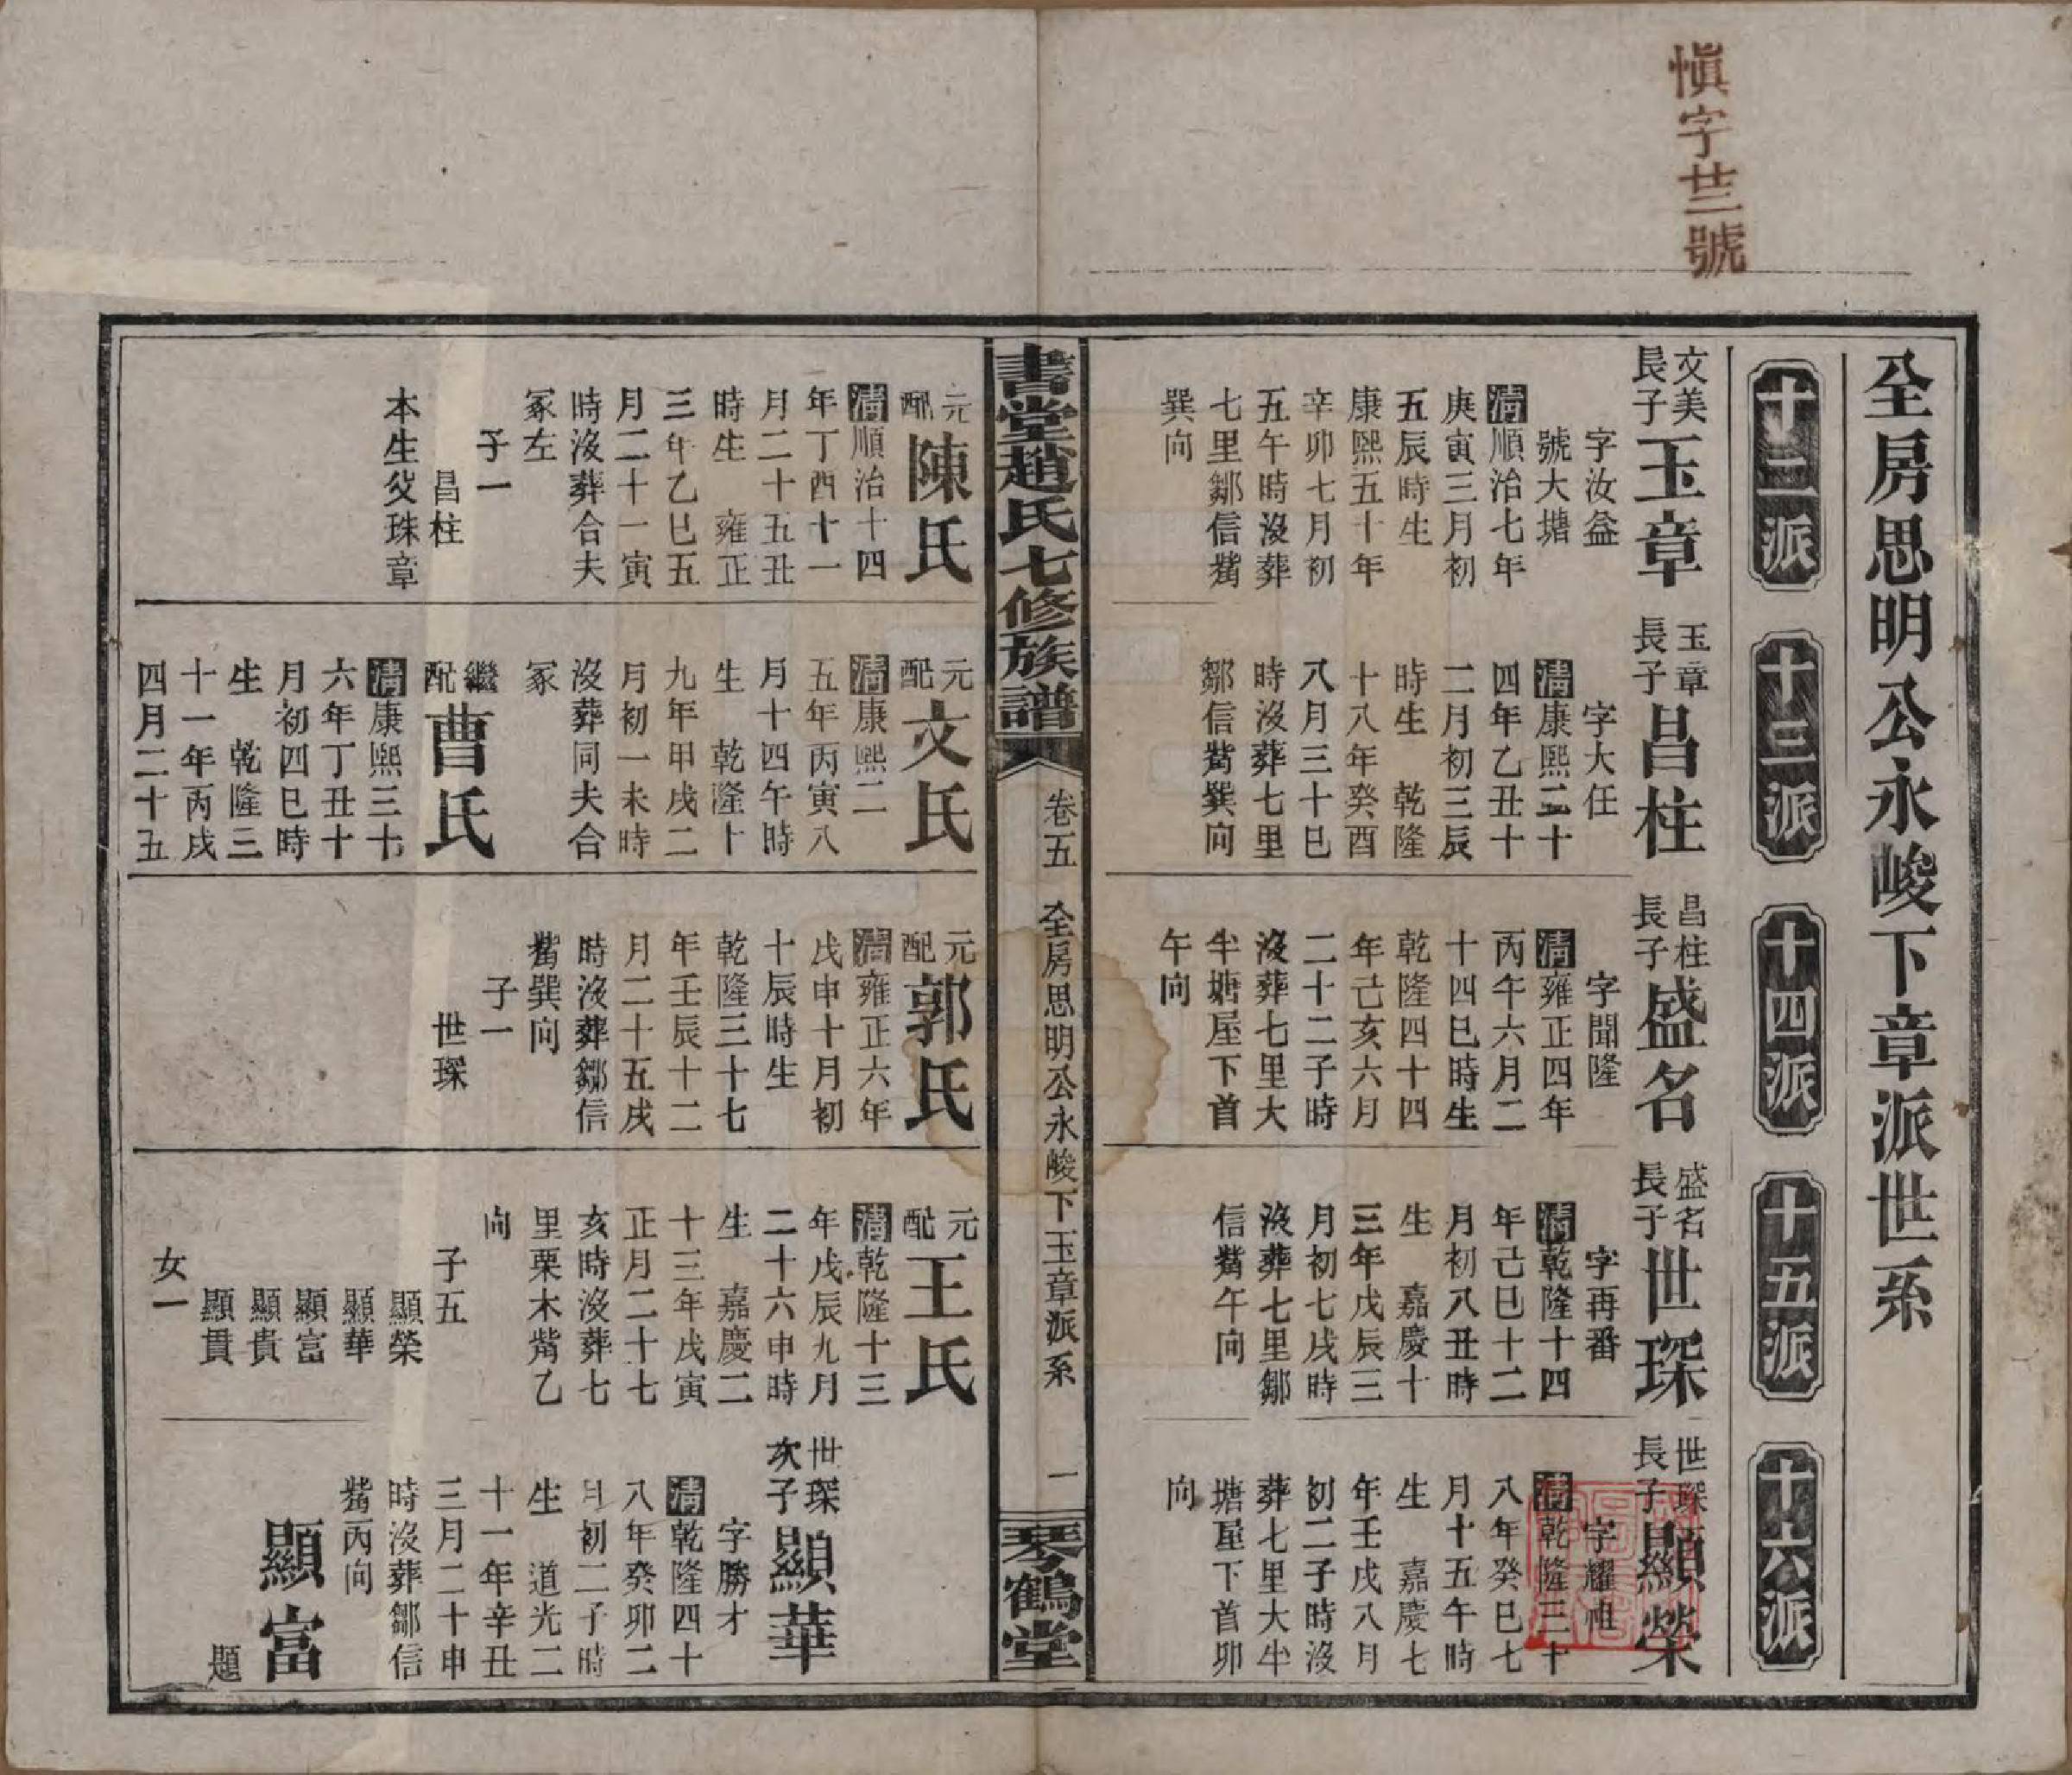 愼字廿三號
全房思明公永峻下章派世系
十二派
十三派
十四派
十五派
十六派
文美
長子
玉章
字汝益
號大塘
清順治七年
庚寅三月初
五辰時生
康熙五十年
辛卯七月初
五午時沒葬
七里鄒信觜
巽向
玉章
長子
昌柱
字大任
清康熙二十
四年乙丑十
二月初三辰
時生 乾隆
十八年癸酉
八月三十巳
時沒葬七里
鄒信觜巽向
昌柱
長子
盛名
字聞隆
清雍正四年
丙午六月二
十四巳時生
乾隆四十四
年己亥六月
二十二子時
沒葬七里大
坐塘屋下首
午向
盛名
長子
世琛
字再番
清乾隆十四
年己巳十二
月初八丑時
生 嘉慶十
三年戊辰三
月初七戌時
沒葬七里鄒
信觜午向
世琛
長子
顯榮
字耀
清乾隆三十
八年癸巳七
月十五午時
生 嘉慶七
年壬戌八月
初二子時沒
葬七里大坐
塘屋下首卯
向
書堂趙氏七修族譜
卷五
全房思明公永峻下玉章派系
一
琴鶴堂
元
配
陳氏
清順治十四
年丁酉十一
月二十五丑
時生 雍正
三年乙巳五
月二十一寅
時沒葬合夫
冢左
子一
昌柱
本生父珠章
元
配
文氏
清康熙二
五年丙寅八
月十四午時
生 乾隆十
九年甲戌二
月初一未時
沒葬同夫合
冢
繼
配
曹氏
清康熙三十
六年丁丑十
月初四巳時
生 乾隆三
十一年丙戌
四月二十五
元
配
郭氏
清雍正六年
戊申十月初
十辰時生
乾隆三十七
年壬辰十二
月二十五戌
時沒葬鄒信
觜巽向
子一
世琛
元
配
王氏
清乾隆十三
年戊辰九月
二十六申時
生 嘉慶二
十三年戊寅
正月二十七
亥時沒葬七
里栗木觜乙
向
子五
顯榮
顯華
顯富
顯貴
顯貫
女一
世琛
次子
顯華
字勝才
清乾隆四十
八年癸卯二
月初二子時
生 道光二
十一年辛丑
三月二十申
時沒葬鄒信
觜丙向
顯富
題